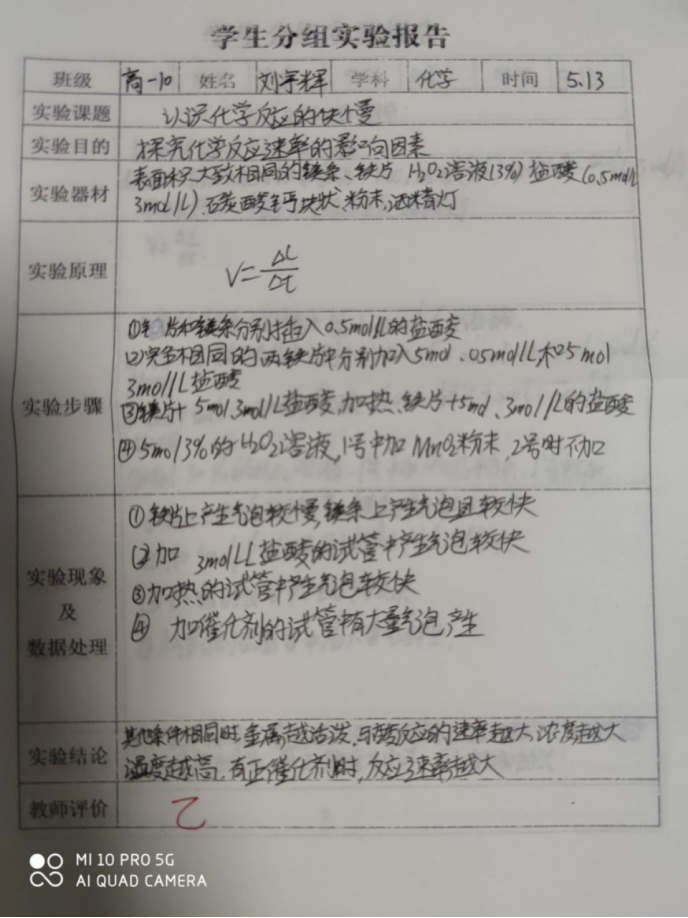 学生分组实验报告
班级 高一10 姓名 刘宇辉 学科 化学 时间 5.13
实验课题 认识化学反应的快慢
实验目的 探究化学反应速率的影响因素
实验器材 表面积大致相同的镁条、铁片 H₂O₂溶液(3%) 盐酸(0.5mol/L
3mol/L).碳酸钙块状、粉末、酒精灯
实验原理 V=Δc/Δt
实验步骤 ①铁片和镁条分别插入0.5mol/L的盐酸
②完全相同的两铁片中分别加入5mol、05mol/L和05mol
3mol/L盐酸
③铁片+5mol、3mol/L盐酸,加热、铁片+5mol、3mol/L的盐酸
④5mol3%的H₂O₂溶液,1号中加MnO₂粉末 2号时不加
实验现象及数据处理 ①铁片上产生气泡较慢,镁条上产生气泡且较快
②加 3mol/L盐酸的试管中产生气泡较快
③加热的试管中产生气泡较快
④ 加催化剂的试管中有大量气泡产生
实验结论 其他条件相同时,金属越活泼,与酸反应的速率越大,浓度越大
温度越高,有正催化剂时,反应速率越大
教师评价 乙
MI 10 PRO 5G
AI QUAD CAMERA